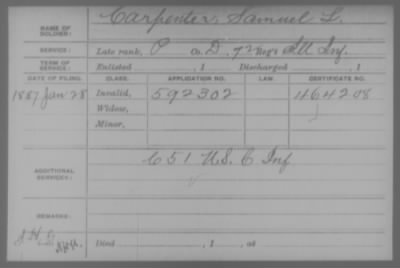 NAME OF SOLDIER: Carpenter, Samuel L.
SERVICE: Late rank, P Co. D, 72 Reg't Ill Inf.
TERM OF SERVICE: Enlisted , 1 Discharged , 1
DATE OF FILING. CLASS. APPLICATION NO. LAW. CERTIFICATE NO.
1887 Jan 28 Invalid, 592302 464208
Widow,
Minor,
ADDITIONAL SERVICES: C 51 U.S. C Inf
REMARKS:
Died , 1 , at